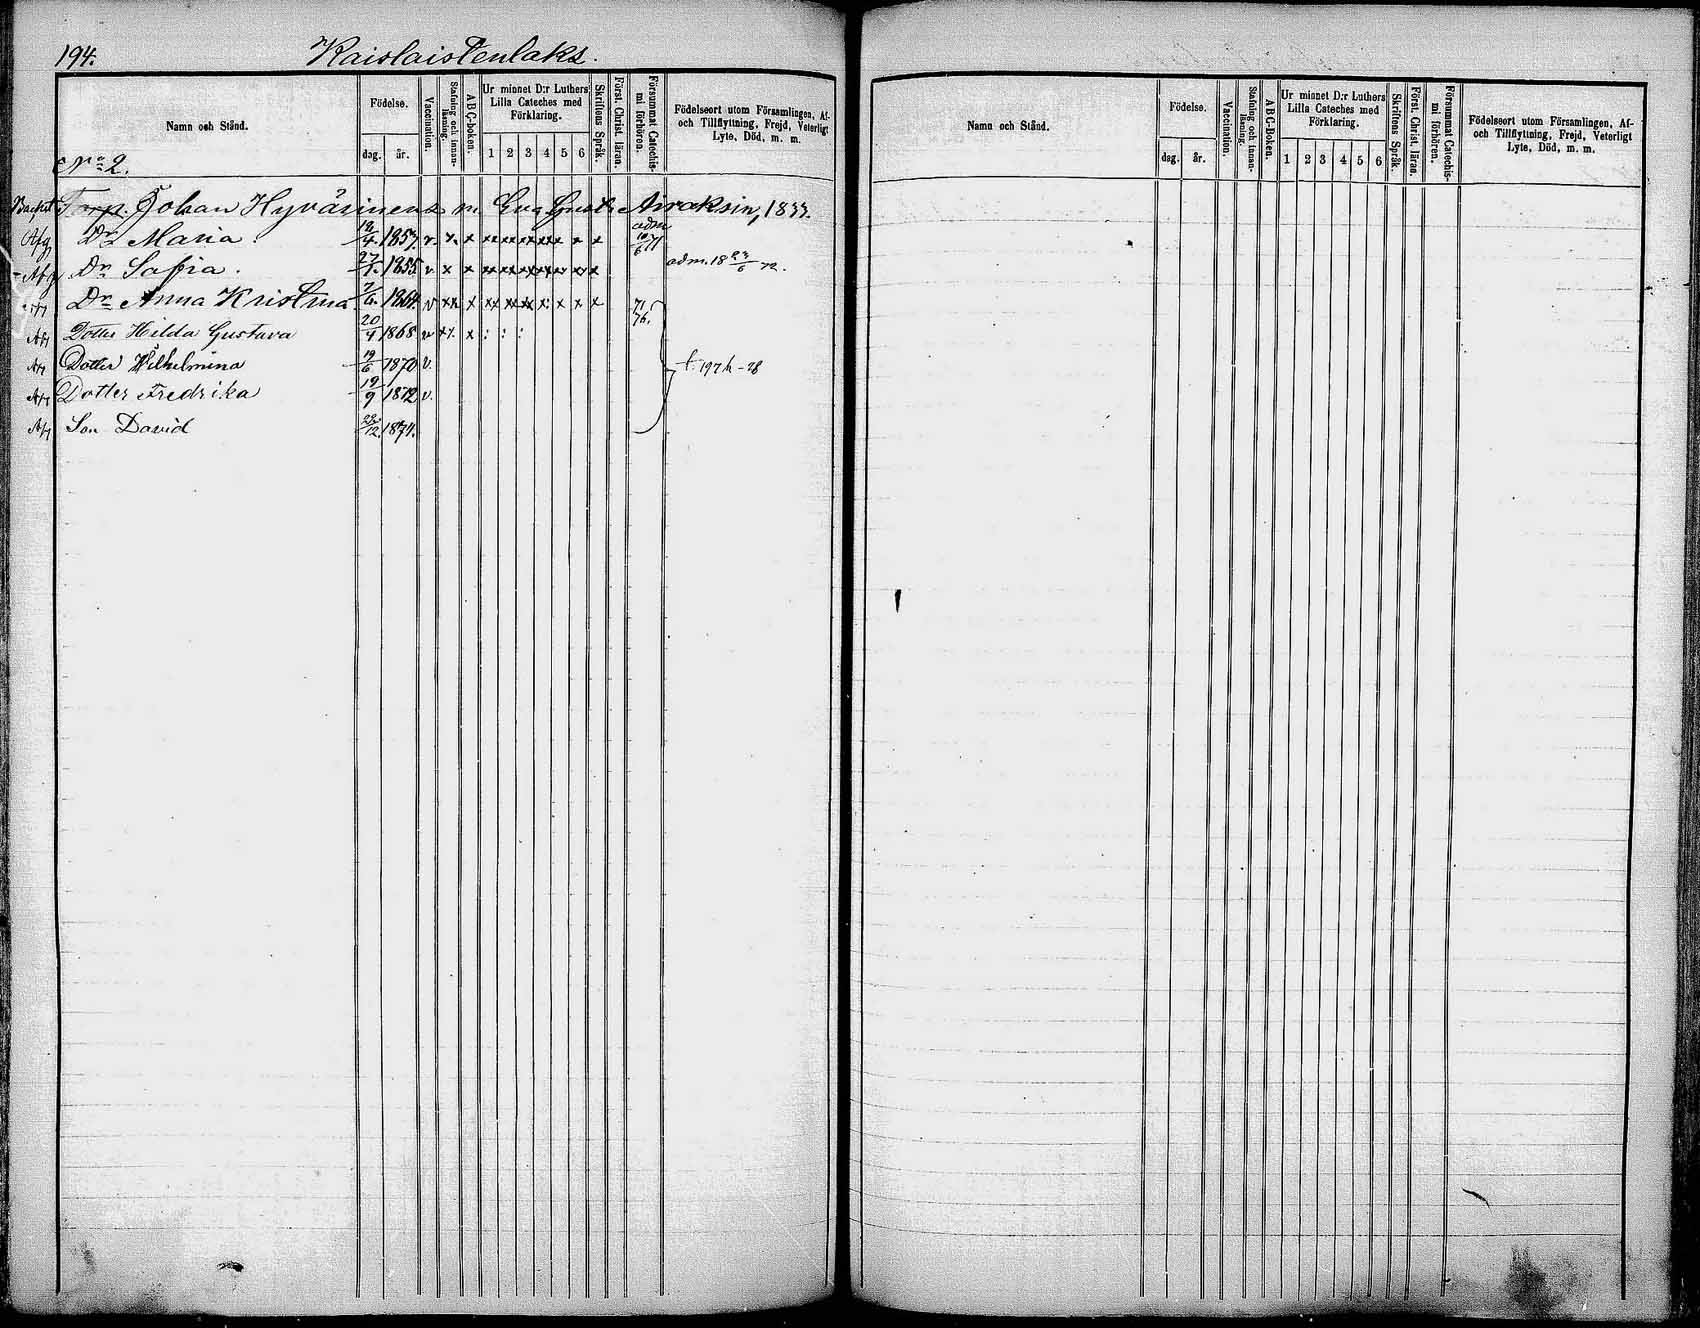 194. Kaislaistenlaks.
Namn och Stånd.
Födelse.
dag. år.
Vaccination.
Stafning och innanläsning.
ABC-boken.
Ur minnet D:r Luthers Lilla Cateches med Förklaring.
1 2 3 4 5 6
Skriftens Språk.
Först. Christ. läran.
Försummat Catechismi förhören.
Födelseort utom Församlingen, Af- och Tillflyttning, Frejd, Veterligt Lyte, Död, m. m.
No 2.
Torp. Johan Hyväsinens m. Eva Gust. Airaksin, 1833.
Afg Dr Maria. 1857. v. x. x xx xx xx xx x x x adm 10/6 71
Afg Dr Sofia. 27/7. 1855 v x x xx xx xx xx xx x x adm. 18 23/6 72.
Afg Dr Anna Kristina 1864. v x x xx xx xx x: x x x 71. 76.
Afg Dotter Hilda Gustava 20/4 1868 v x x. x : : :
Afg Dotter Wilhelmina 19/6 1870 v. f. 197 h-78
Afg Dotter Fredrika 19/9 1872 v.
Afg Son David 28/12. 1874.
Namn och Stånd.
Födelse.
dag. år.
Vaccination.
Stafning och innanläsning.
ABC-Boken.
Ur minnet D:r Luthers Lilla Cateches med Förklaring.
1 2 3 4 5 6
Skriftens Språk.
Först. Christ. läran.
Försummat Catechismi förhören.
Födelseort utom Församlingen, Af- och Tillflyttning, Frejd, Veterligt Lyte, Död, m. m.